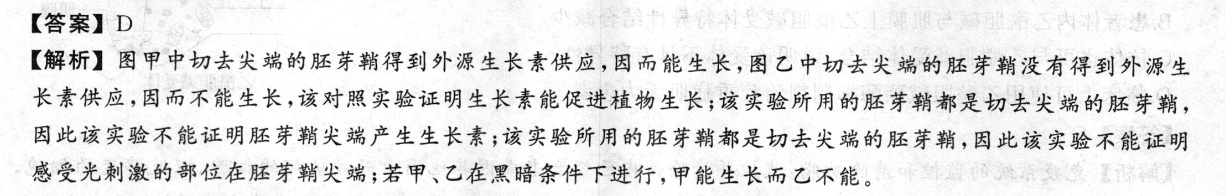 【答案】D
【解析】图甲中切去尖端的胚芽鞘得到外源生长素供应,因而能生长,图乙中切去尖端的胚芽鞘没有得到外源生
长素供应,因而不能生长,该对照实验证明生长素能促进植物生长;该实验所用的胚芽鞘都是切去尖端的胚芽鞘,
因此该实验不能证明胚芽鞘尖端产生生长素;该实验所用的胚芽鞘都是切去尖端的胚芽鞘,因此该实验不能证明
感受光刺激的部位在胚芽鞘尖端;若甲、乙在黑暗条件下进行,甲能生长而乙不能。